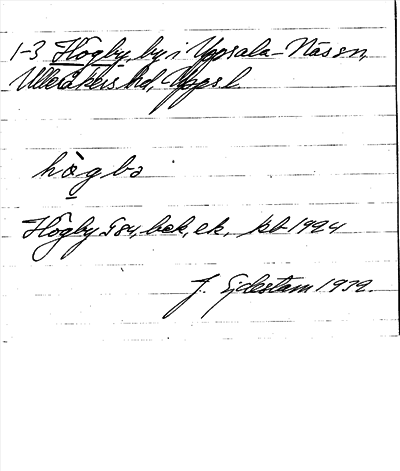 1-3 Högby, by i Uppsala-Näs sn,
Ulleråkers hd, Upps l.
hògbə
Högby Gsn, bek, ek, kb 1924
J. Ejdestam 1939.